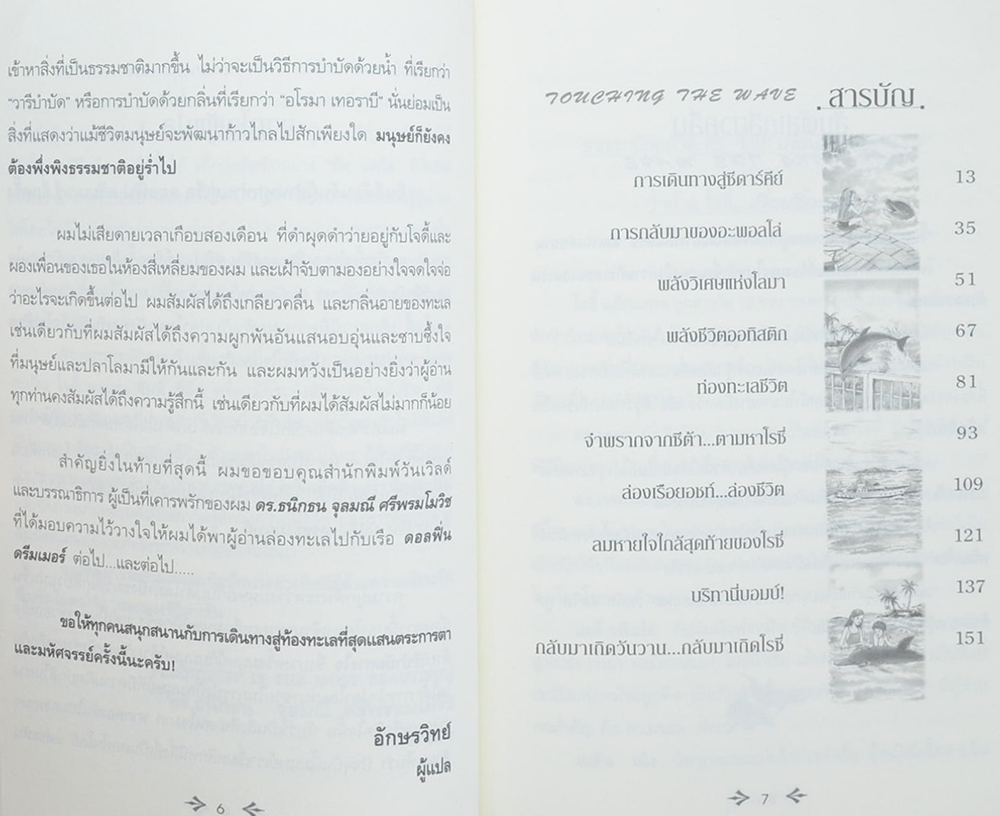 เข้าหาสิ่งที่เป็นธรรมชาติมากขึ้น ไม่ว่าจะเป็นวิธีการบำบัดด้วยน้ำ ที่เรียกว่า
"วารีบำบัด" หรือการบำบัดด้วยกลิ่นที่เรียกว่า "อโรมา เทอราบี" นั่นย่อมเป็น
สิ่งที่แสดงว่าแม้ชีวิตมนุษย์จะพัฒนาก้าวไกลไปสักเพียงใด มนุษย์ก็ยังคง
ต้องพึ่งพิงธรรมชาติอยู่ร่ำไป
ผมไม่เสียดายเวลาเกือบสองเดือน ที่ดำผุดดำว่ายอยู่กับโจดี้และ
ผองเพื่อนของเธอในห้องสี่เหลี่ยมของผม และเฝ้าจับตามองอย่างใจจดใจจ่อ
ว่าอะไรจะเกิดขึ้นต่อไป ผมสัมผัสได้ถึงเกลียวคลื่น และกลิ่นอายของทะเล
เช่นเดียวกับที่ผมสัมผัสได้ถึงความผูกพันอันแสนอบอุ่นและซาบซึ้งใจ
ที่มนุษย์และปลาโลมามีให้กันและกัน และผมหวังเป็นอย่างยิ่งว่าผู้อ่าน
ทุกท่านคงสัมผัสได้ถึงความรู้สึกนี้ เช่นเดียวกับที่ผมได้สัมผัสไม่มากก็น้อย
สำคัญยิ่งในท้ายที่สุดนี้ ผมขอขอบคุณสำนักพิมพ์วันเวิลด์
และบรรณาธิการ ผู้เป็นที่เคารพรักของผม ดร.ธนิกธน จุลมณี ศรีพรมโมวิช
ที่ได้มอบความไว้วางใจให้ผมได้พาผู้อ่านล่องทะเลไปกับเรือ ดอลฟิ่น
ดรีมเมอร์ ต่อไป...และต่อไป.....
ขอให้ทุกคนสนุกสนานกับการเดินทางสู่ท้องทะเลที่สุดแสนตระการตา
และมหัศจรรย์ครั้งนี้นะครับ!
อักษรวิทย์
ผู้แปล
6
TOUCHING THE WAVE . สารบัญ .
การเดินทางสู่ซีดาร์คีย์ 13
การกลับมาของอะพอลโล่ 35
พลังวิเศษแห่งโลมา 51
พลังชีวิตออทิสติก 67
ท่องทะเลชีวิต 81
จำพรากจากชีต้า...ตามหาโรซี่ 93
ล่องเรือยอชท์...ล่องชีวิต 109
ลมหายใจใกล้สุดท้ายของโรซี่ 121
บริทานี่บอมบ์! 137
กลับมาเกิดวันวาน...กลับมาเกิดโรซี่ 151
7